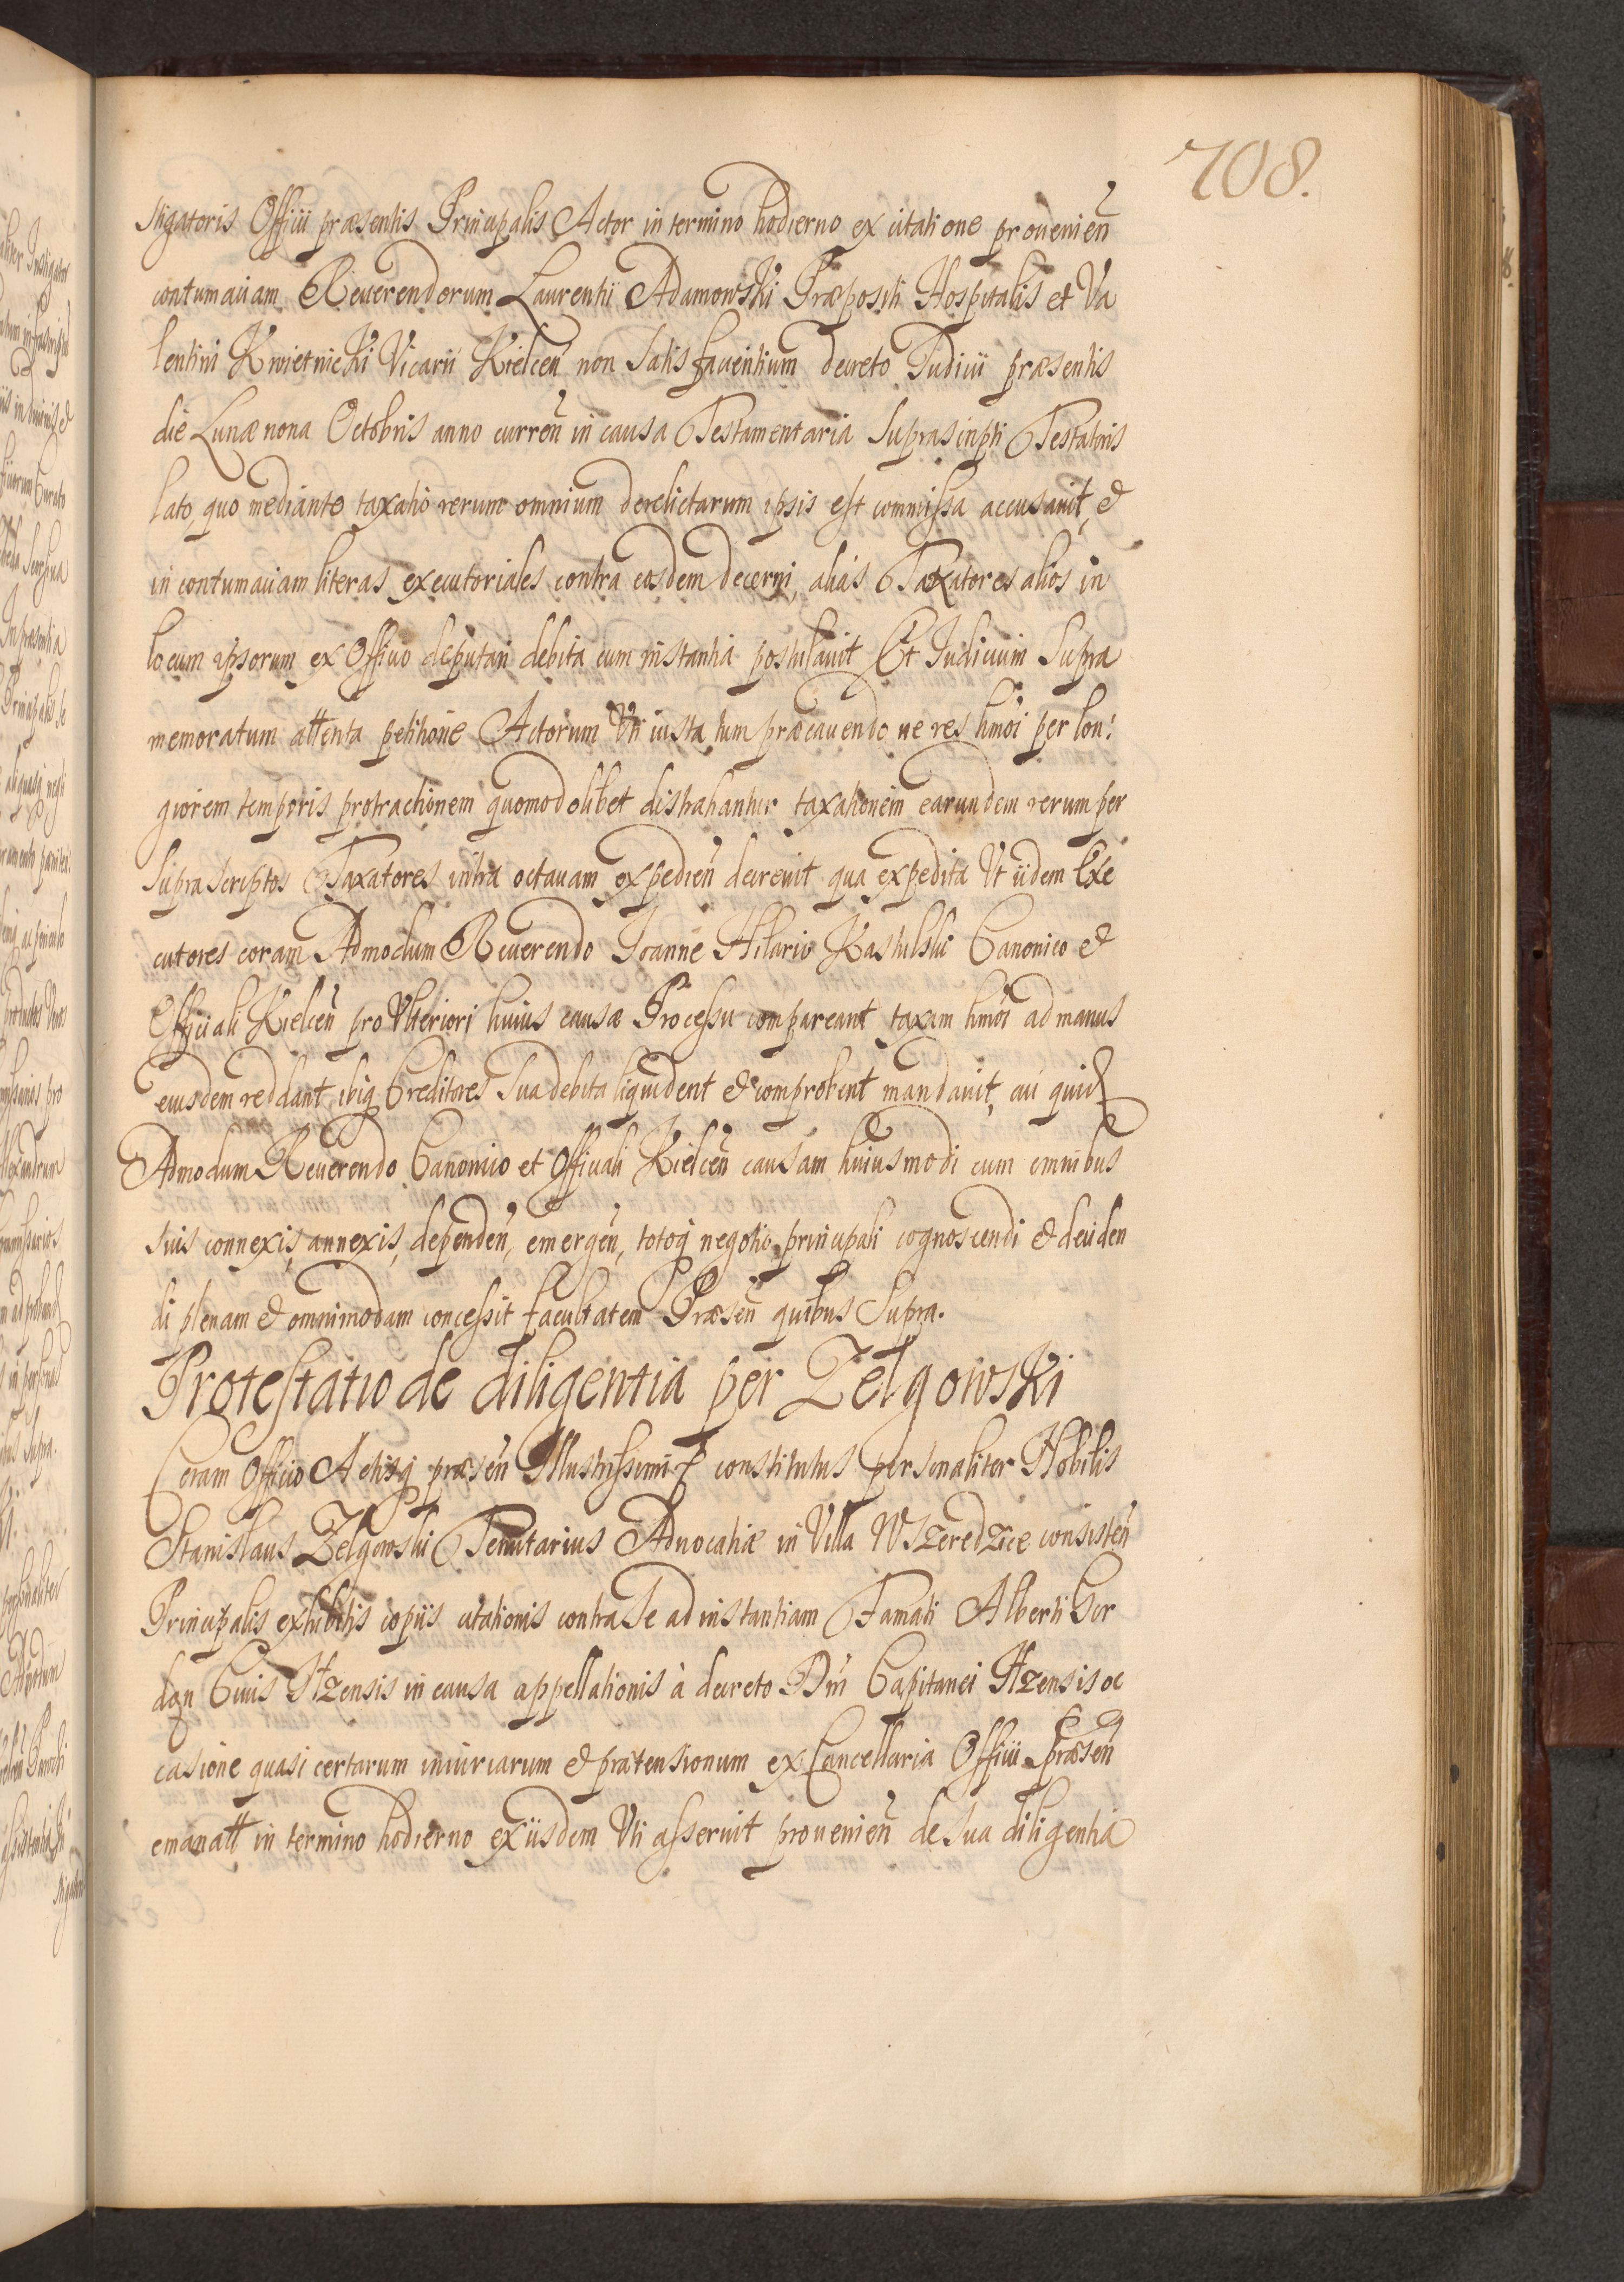 708.
stigatoris Officii præsentis Principalis Actor in termino hodierno ex citatione prouenien̄
contumaciam Reuerendorum Laurentii Adamowski Præpositi Hospitalis et Va
lentini Kwietnicki Vicarii Kielcen̄ non satisfacientium decreto Judicii præsentis
die Lunæ nona Octobris anno curren̄ in causa Testamentaria suprascripti Testatoris
lato, quo mediante taxatio rerum omnium derelictarum ipsis est commissa accusauit, &
in contumaciam literas executoriales contra eosdem decerni, alias Taxatores alios in
locum ipsorum ex Officio deputari debita cum instantia postulauit Et Iudicium supra
memoratum attenta petitione Actorum Vti iusta tum præcauendo ne res hmōi per lon:
giorem temporis protractionem quomodolibet distrahantur taxationem earundem rerum per
suprascriptos Taxatores intra octauam expedien̄ decreuit qua expedita Vt iidem Exe
cutores coram Admodum Reuerendo Joanne Hilario Kastulski Canonico &
Officiali Kielcen̄ pro Vlteriori huius causæ Processu compareant taxam hmōi ad manus
eiusdem reddant, ibiq Creditores sua debita liquident & comprobent mandauit, cui quid
Admodum Reuerendo Canonico et Officiali Kielcen̄ causam huiusmodi cum omnibus
suis connexis, annexis, dependen̄, emergen̄, totoq negotio principali cognoscendi & deciden
di plenam & omnimodam concessit facultatem Præsen̄ quibus Supra.
Protestatio de diligentia per Zelgowski
Coram Officio Actisq præsen̄ Illustrissimi constitutus personaliter Nobilis
Stanislaus Zelgowski Tenutarius Aduocatiæ in Villa Wszeredzice consisten̄
Principalis exhibitis copiis citationis contra se ad instantiam Famati Alberti Gor
don Ciuis Ilzensis in causa appellationis à decreto Dn̄i Capitanei Ilzensis oc
casione quasi certarum iniuriarum & prætensionum ex Cancellaria Officii præsen̄
emanatt in termino hodierno ex iisdem Vti asseruit prouenien̄ de sua diligentia